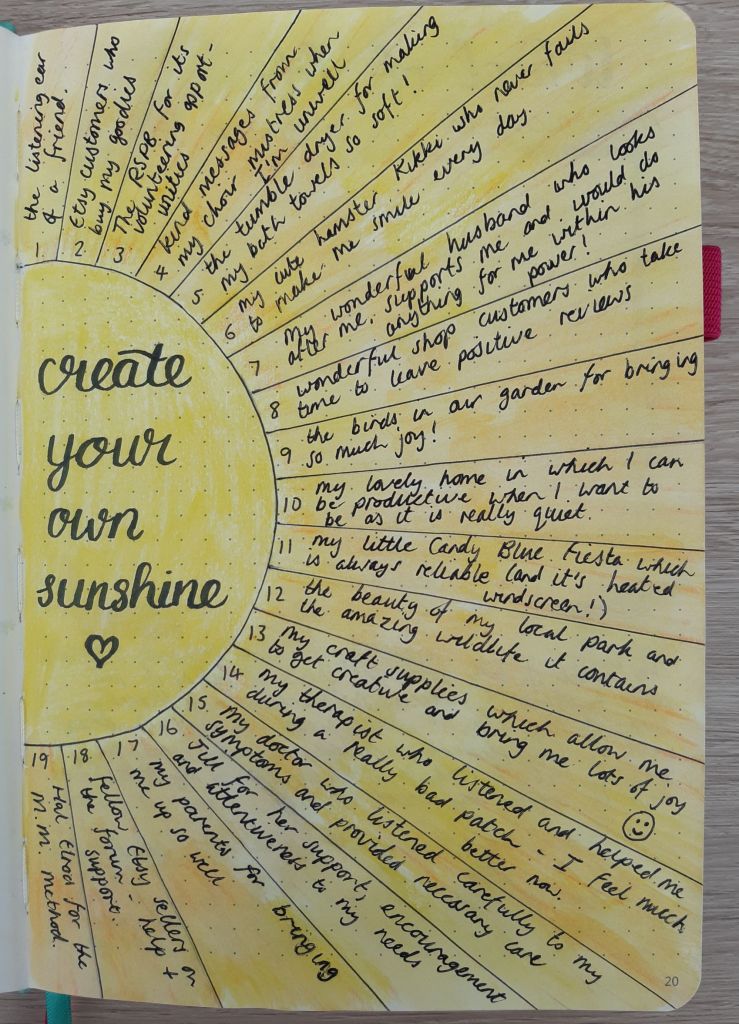 create
your
own
sunshine
1. the listening ear
of a friend.
2. Etsy customers who
buy my goodies
3 The RSPB for its
volunteering opport-
unities
4 kind messages from
my choir mistress when
I'm unwell
5 the tumble dryer for making
my bath towels so soft!
6 my cute hamster Kikki who never fails
to make me smile every day.
7 My wonderful husband who looks
after me, supports me and would do
anything for me within his
power!
8 wonderful shop customers who take
time to leave positive reviews
9 the birds in our garden for bringing
so much joy!
10 my lovely home in which I can
be productive when I want to
be as it is really quiet.
11 my little Candy Blue Fiesta which
is always reliable (and it's heated
windscreen!)
12 the beauty of my local park and
the amazing wildlife it contains
13 my craft supplies which allow me
to get creative and bring me lots of joy
14 my therapist who listened and helped me
during a really bad patch - I feel much
better now.
15 my doctor who listened carefully to my
symptoms and provided necessary care
16 Jill for her support, encouragement
and attentiveness to my needs
17 my parents for bringing
me up so well
18 fellow Etsy sellers on
the forum - help +
support.
19 Hal Elrod for the
M.M. method.
20